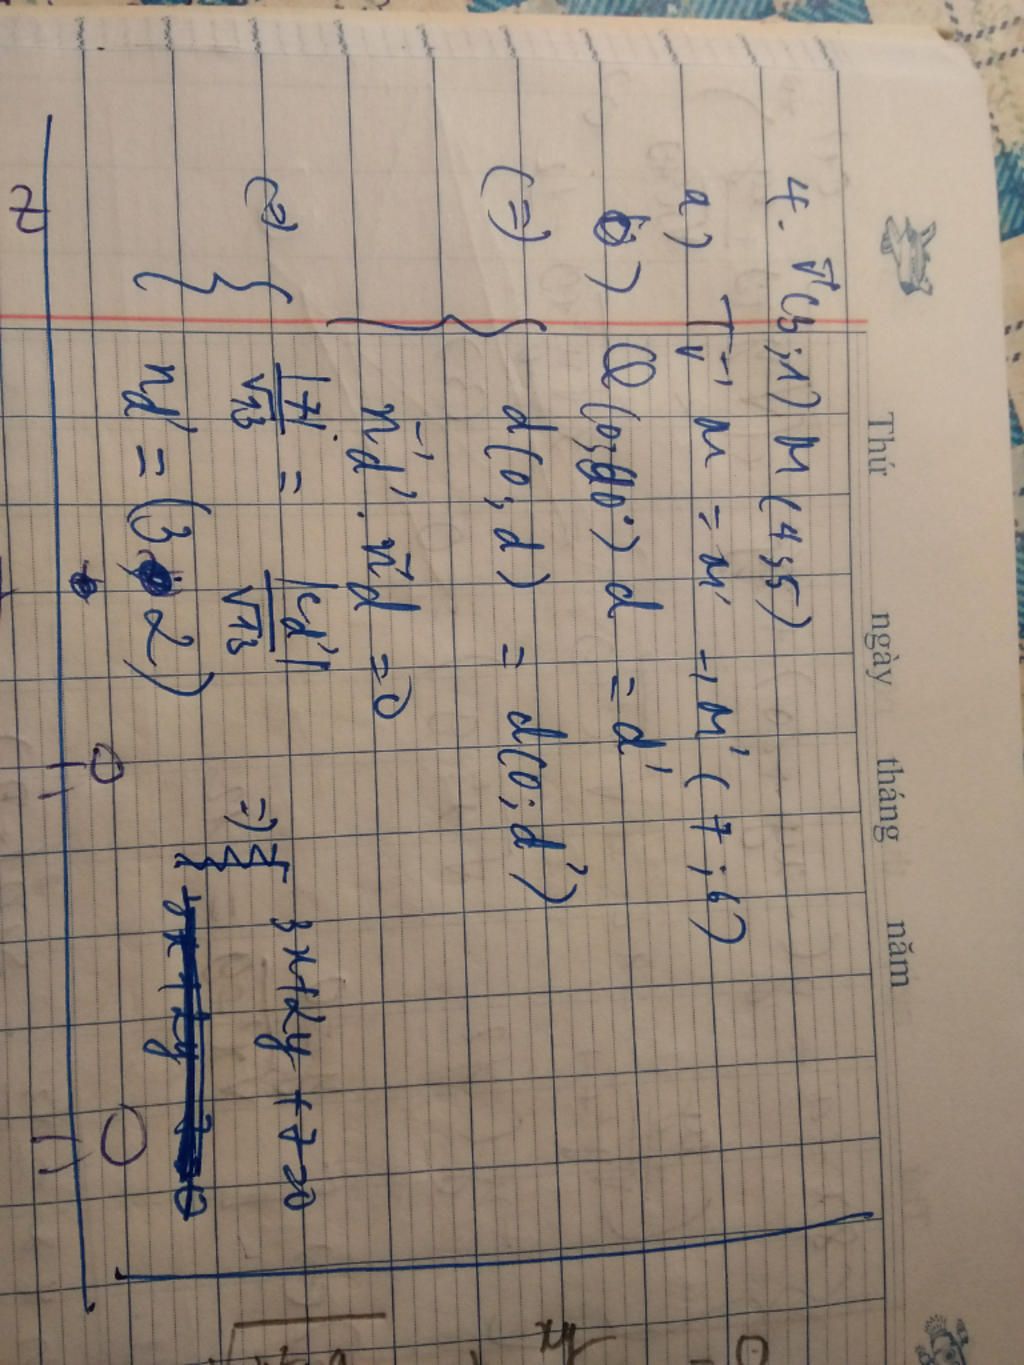 Thứ ngày tháng năm
4. v⃗(3;1) M(4;5)
a) Tv⃗ M = M' → M'(7;6)
b) Q(0;90°) d = d'
(=) d(0;d) = d(0;d')
n⃗d'. n⃗d = 0
(=) |7|/√13 = |cd'|/√13 =) 3x+2y+7=0
nd' = (3;2)
xy